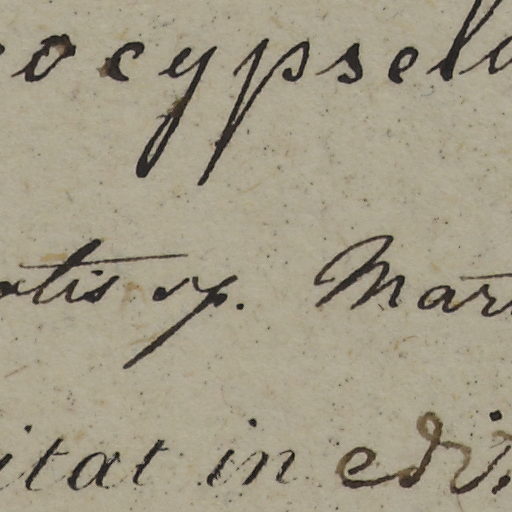 ocypsel
atis sp. Mar
itat in edi